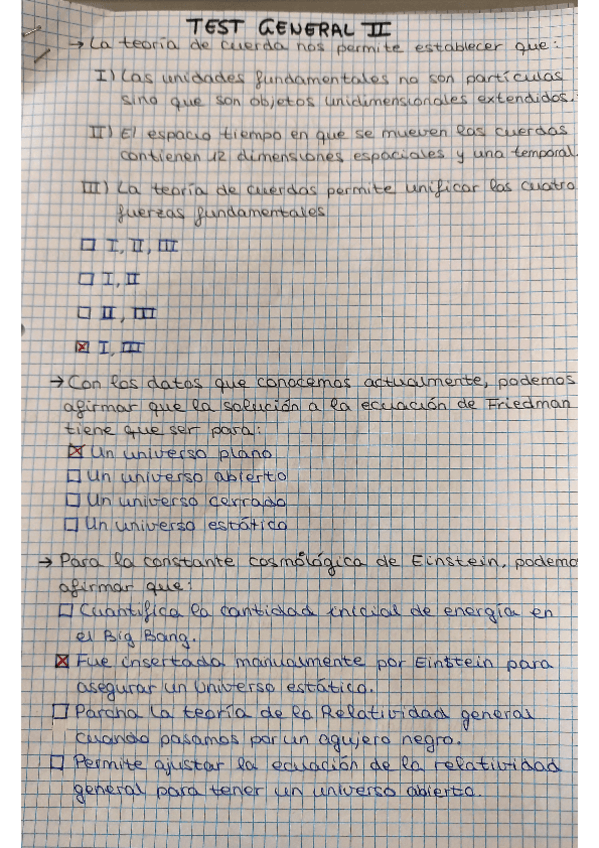 TEST GENERAL II
→ La teoría de cuerda nos permite establecer que:
I) Las unidades fundamentales no son partículas
sino que son objetos unidimensionales extendidos.
II) El espacio tiempo en que se mueven las cuerdas
contienen 12 dimensiones espaciales y una temporal.
III) La teoría de cuerdas permite unificar las cuatro
fuerzas fundamentales
☐ I, II, III
☐ I, II
☐ II, III
☒ I, III
→ Con los datos que conocemos actualmente, podemos
afirmar que la solución a la ecuación de Friedman
tiene que ser para:
☒ Un universo plano
☐ Un universo abierto
☐ Un universo cerrado
☐ Un universo estático
→ Para la constante cosmológica de Einstein, podemo
afirmar que:
☐ Cuantifica la cantidad inicial de energía en
el Big Bang.
☒ Fue insertada manualmente por Einstein para
asegurar un Universo estático.
☐ Parcha la teoría de la Relatividad general
cuando pasamos por un agujero negro.
☐ Permite ajustar la ecuación de la relatividad
general para tener un universo abierto.